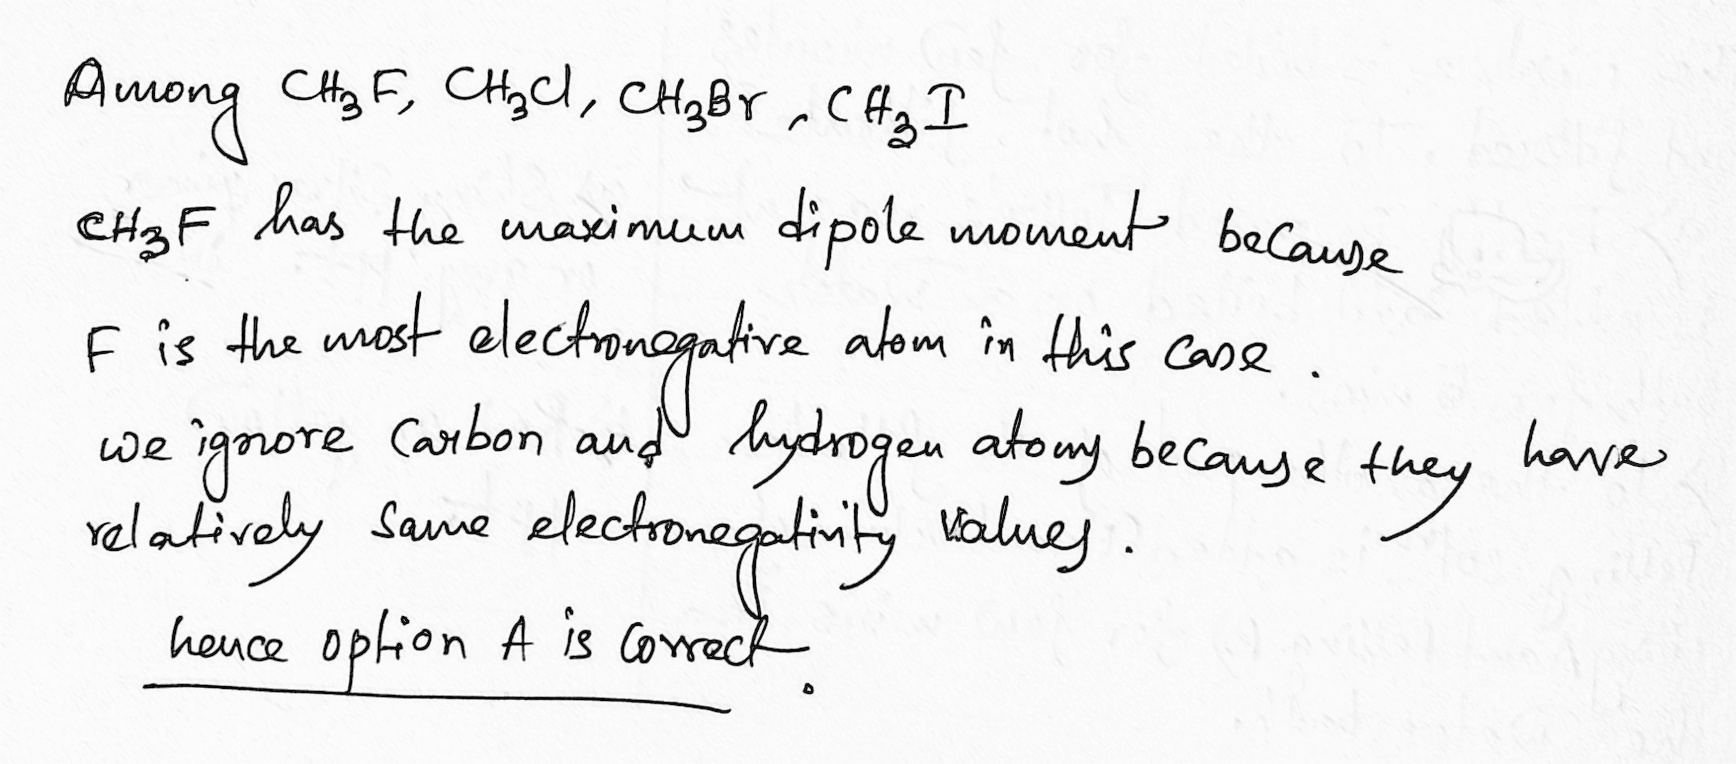 Among CH₃F, CH₃Cl, CH₃Br, CH₃I
CH₃F has the maximum dipole moment because
F is the most electronegative atom in this case.
we ignore Carbon and hydrogen atoms because they have
relatively same electronegativity values.
hence option A is correct.